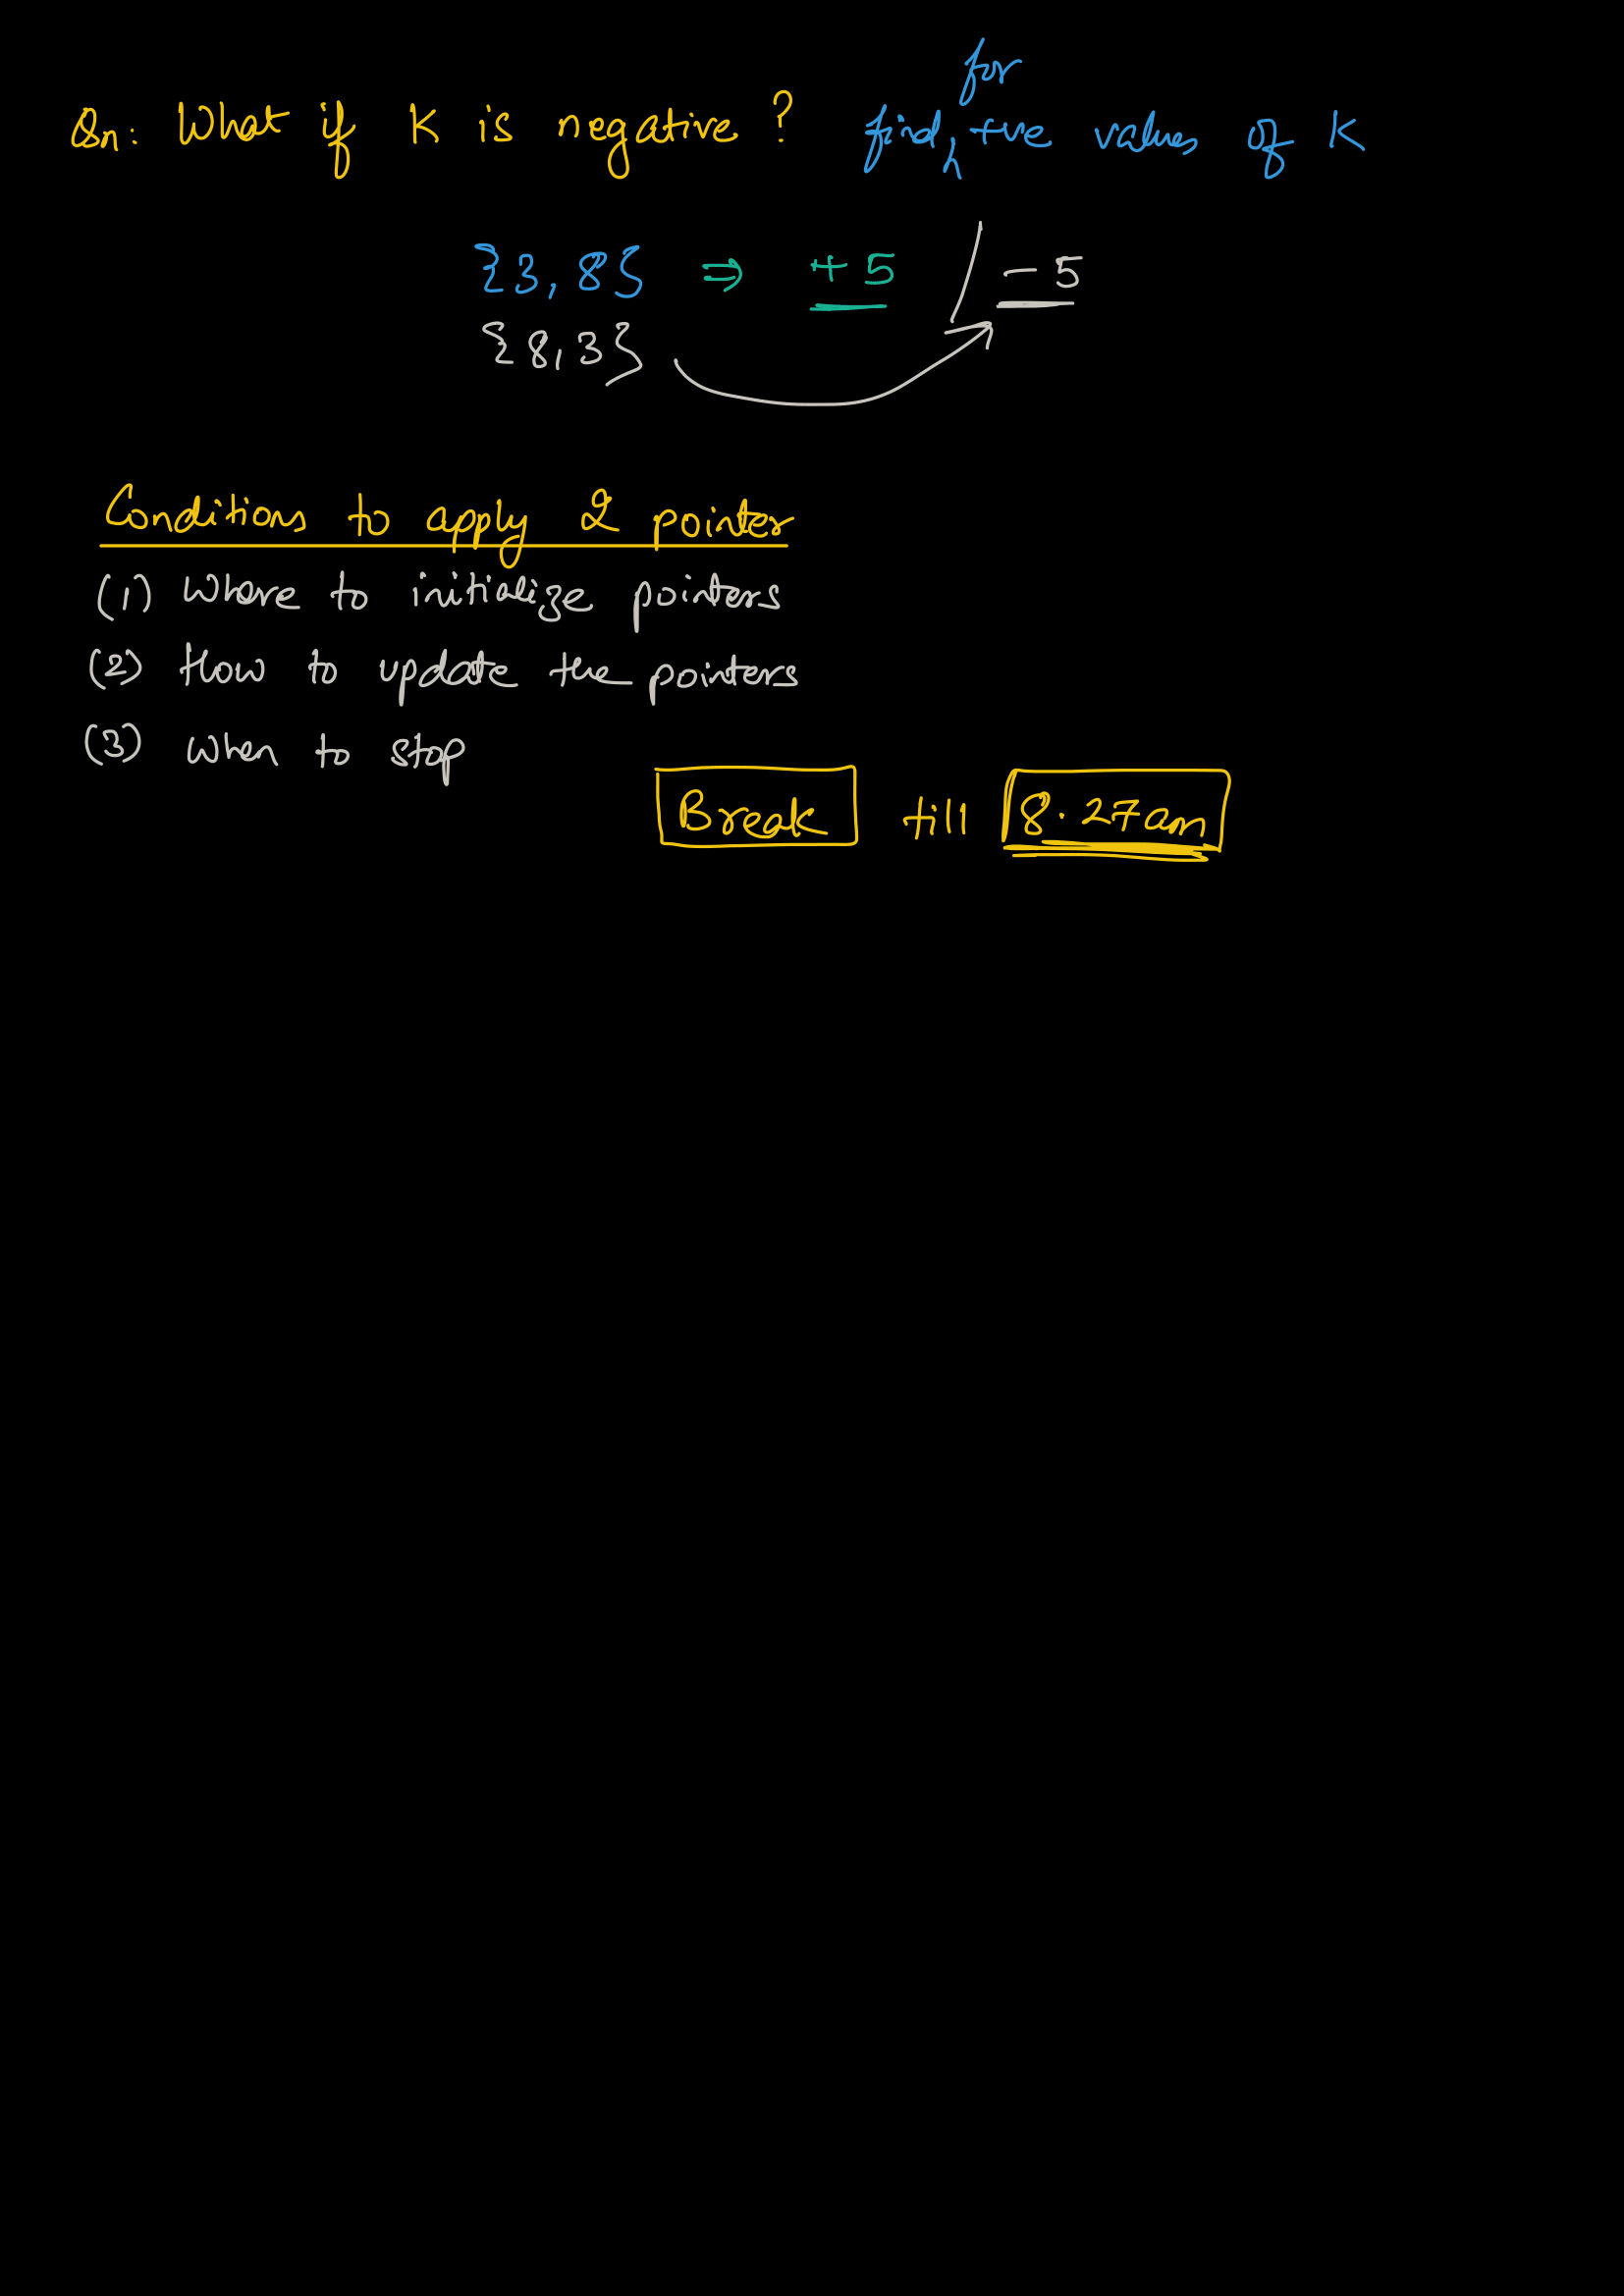 for
Qn: What if K is negative? find +ve values of K
{3, 8} ⇒ +5 / -5
{8, 3}
Conditions to apply 2 pointer
(1) Where to initialize pointers
(2) How to update the pointers
(3) When to stop
Break till 8.27am